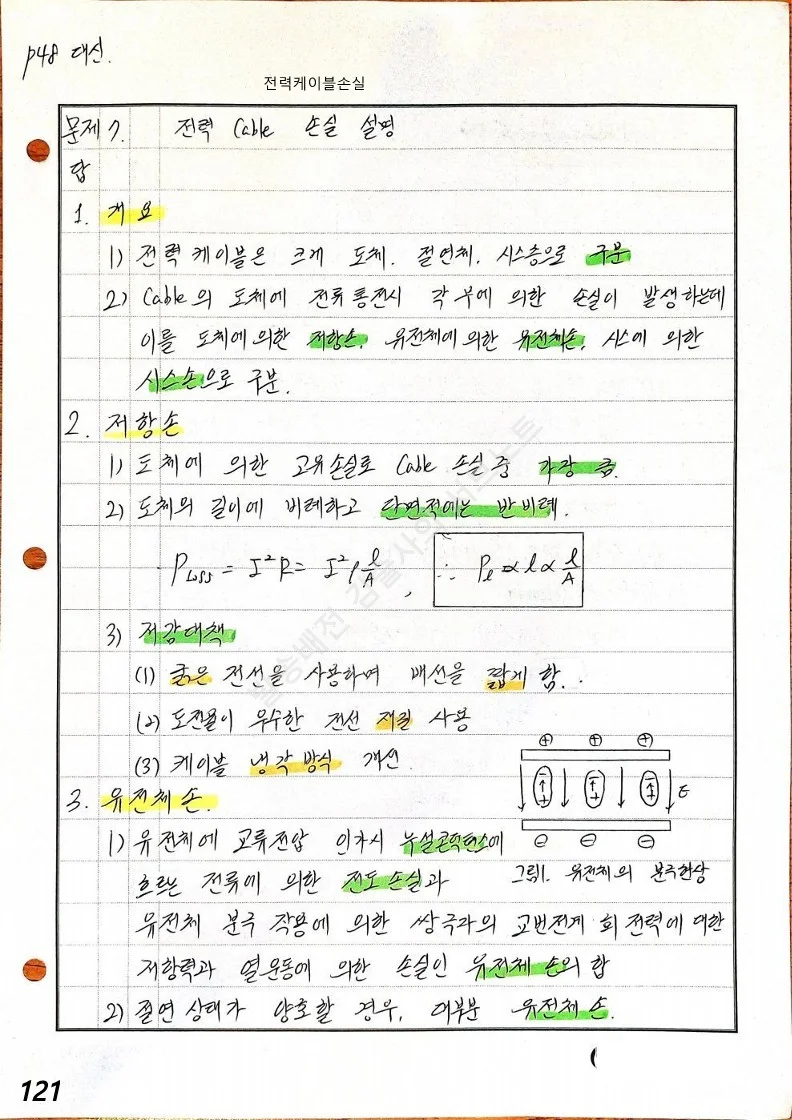 p48 대신.
전력케이블손실
문제 7. 전력 Cable 손실 설명
답
1. 개요
1) 전력 케이블은 크게 도체. 절연체. 시스층으로 구분
2) Cable의 도체에 전류 통전시 각 부에 의한 손실이 발생하는데
이를 도체에 의한 저항손, 유전체에 의한 유전체손, 시스에 의한
시스손으로 구분.
2. 저항손
1) 도체에 의한 고유손실로 Cable 손실 중 가장 큼.
2) 도체의 길이에 비례하고 단면적에는 반비례.
· P_Loss = I²R = I²ρ l/A , ∴ P_l ∝ l ∝ l/A
3) 저감대책
(1) 굵은 전선을 사용하며 배선을 짧게 함.
(2) 도전율이 우수한 전선 재질 사용
(3) 케이블 냉각 방식 개선.
3. 유전체 손.
⊕ ⊕ ⊕
E
⊖ ⊖ ⊖
그림1. 유전체의 분극현상
1) 유전체에 교류전압 인가시 누설콘덕턴스에
흐르는 전류에 의한 전도 손실과
유전체 분극 작용에 의한 쌍극자의 교번전계 회전력에 대한
저항력과 열운동에 의한 손실인 유전체 손의 합
2) 절연 상태가 양호할 경우, 대부분 유전체 손.
121